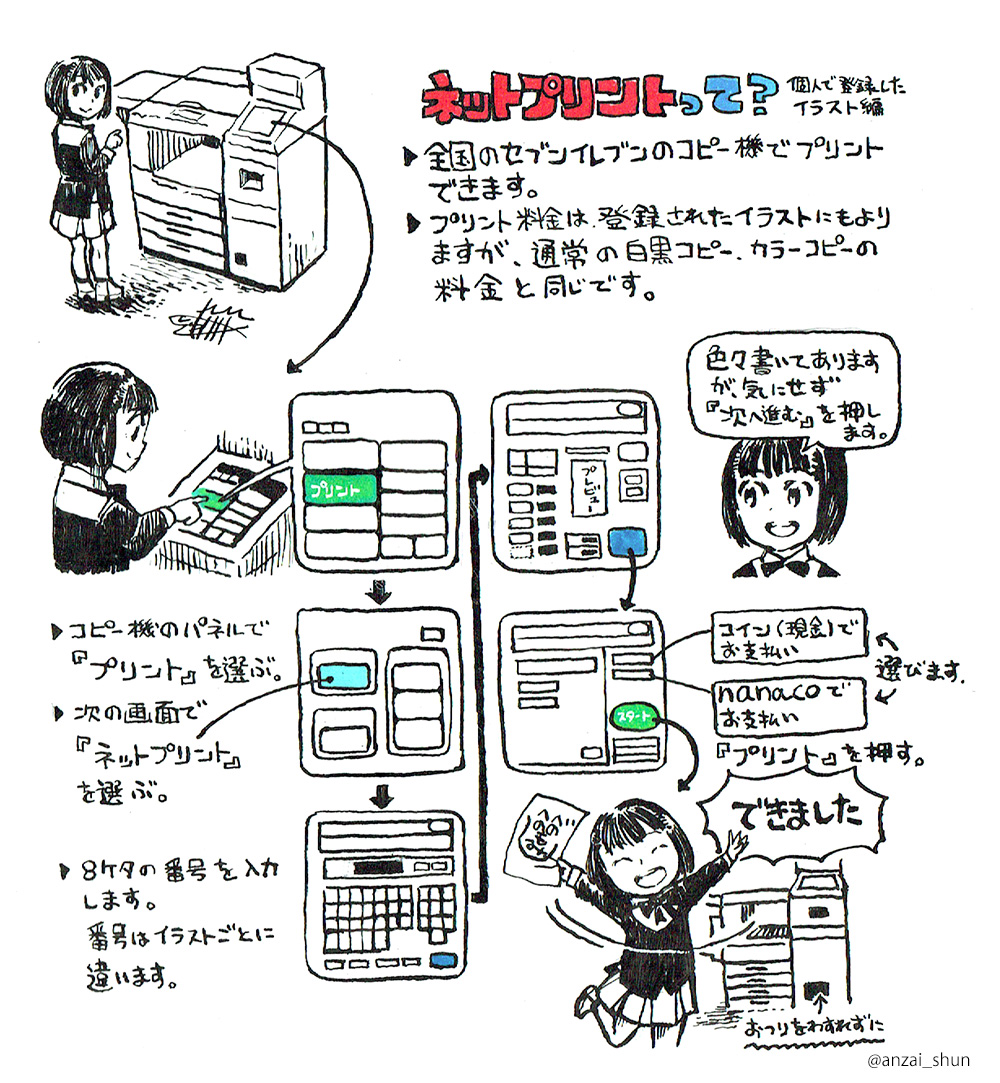 ネットプリントって?
個人で登録した
イラスト編
▶全国のセブンイレブンのコピー機でプリント
できます。
▶プリント料金は、登録されたイラストにもより
ますが、通常の白黒コピー、カラーコピーの
料金と同じです。
プリント
▶コピー機のパネルで
『プリント』を選ぶ。
▶次の画面で
『ネットプリント』
を選ぶ。
▶8ケタの番号を入力
します。
番号はイラストごとに
違います。
プレビュー
色々書いてあります
が、気にせず
『次へ進む』を押し
ます。
コイン(現金)で
お支払い
nanacoで
お支払い
選びます.
スタート
『プリント』を押す。
できました
おつりをわすれずに
@anzai_shun